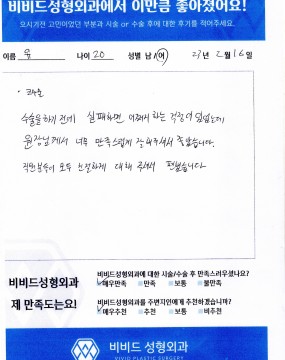 비비드성형외과에서 이만큼 좋아졌어요!
오시기전 고민이었던 부분과 시술 or 수술 후에 대한 후기를 적어주세요.
이름 나이 20 성별 남/여 년 2월 16일
수술을 하기 전에 실패하면 어쩌지 하는 걱정이 있었는데
원장님께서 너무 만족스럽게 잘 해주셔서 좋았습니다.
직원분들이 모두 친절하게 대해 주셔서 편했습니다
비비드성형외과
제 만족도는요!
비비드성형외과에 대한 시술/수술 후 만족스러우셨나요?
매우만족 만족 보통 불만족
비비드성형외과를 주변지인에게 추천하겠습니까?
매우추천 추천 보통 비추천
비비드 성형외과
VIVID PLASTIC SURGERY